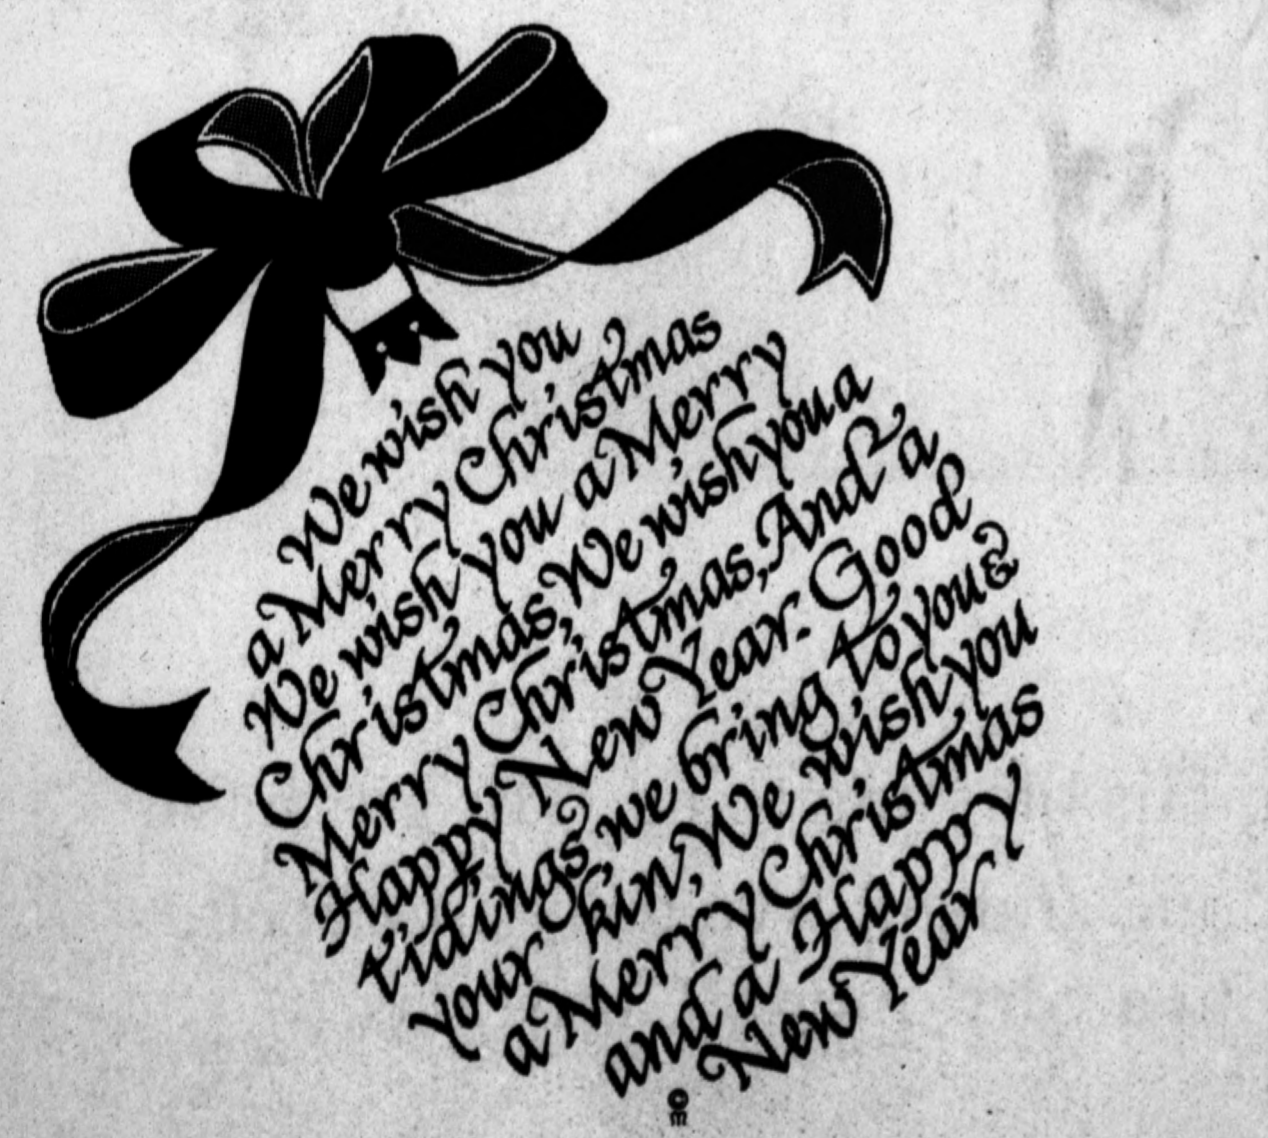 We wish you
a Merry Christmas
We wish you a Merry
Christmas, We wish you a
Merry Christmas, And a
Happy, New Year. Good
tidings we bring to you &
your kin, We wish you
a Merry Christmas
and a Happy
New Year
©
m